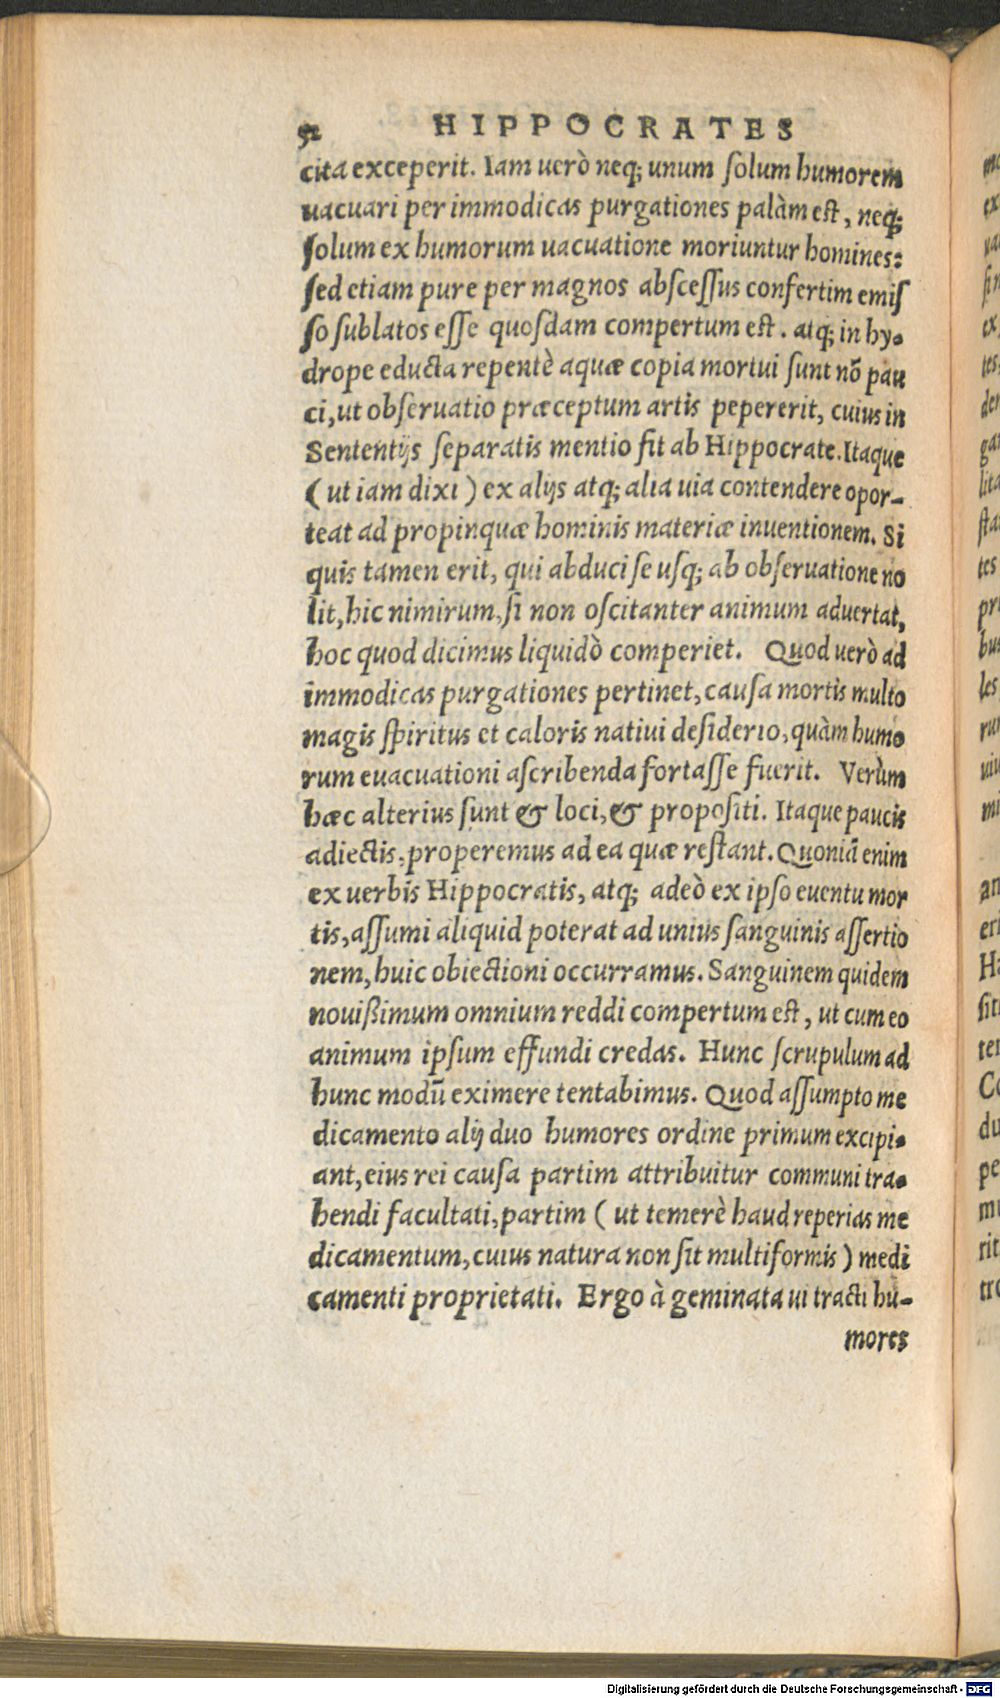 52 HIPPOCRATES
cita exceperit. Iam uerò neq; unum ſolum humorem
uacuari per immodicas purgationes palàm eſt, neq;
ſolum ex humorum uacuatione moriuntur homines:
ſed etiam pure per magnos abſceſſus confertim emiſ
ſo ſublatos eſſe quoſdam compertum eſt. atq; in hy-
drope educta repentè aquæ copia mortui ſunt nõ pau
ci, ut obſeruatio præceptum artis pepererit, cuius in
Sententijs ſeparatis mentio fit ab Hippocrate. Itaque
(ut iam dixi) ex alijs atq; alia uia contendere opor-
teat ad propinquæ hominis materiæ inuentionem. Si
quis tamen erit, qui abduci ſe uſq; ab obſeruatione no
lit, hic nimirum, ſi non oſcitanter animum aduertat,
hoc quod dicimus liquidò comperiet. Quod uerò ad
immodicas purgationes pertinet, cauſa mortis multo
magis ſpiritus et caloris natiui deſiderio, quàm humo
rum euacuationi aſcribenda fortaſſe fuerit. Verùm
hæc alterius ſunt & loci, & propoſiti. Itaque paucis
adiectis, properemus ad ea quæ reſtant. Quoniã enim
ex uerbis Hippocratis, atq; adeò ex ipſo euentu mor
tis, aſſumi aliquid poterat ad unius ſanguinis aſſertio
nem, huic obiectioni occurramus. Sanguinem quidem
nouißimum omnium reddi compertum eſt, ut cum eo
animum ipſum effundi credas. Hunc ſcrupulum ad
hunc modũ eximere tentabimus. Quod aſſumpto me
dicamento alij duo humores ordine primum excipi-
ant, eius rei cauſa partim attribuitur communi tra-
hendi facultati, partim (ut temerè haud reperias me
dicamentum, cuius natura non ſit multiformis) medi
camenti proprietati. Ergo à geminata ui tracti hu-
mores
Digitalisierung gefördert durch die Deutsche Forschungsgemeinschaft - DFG